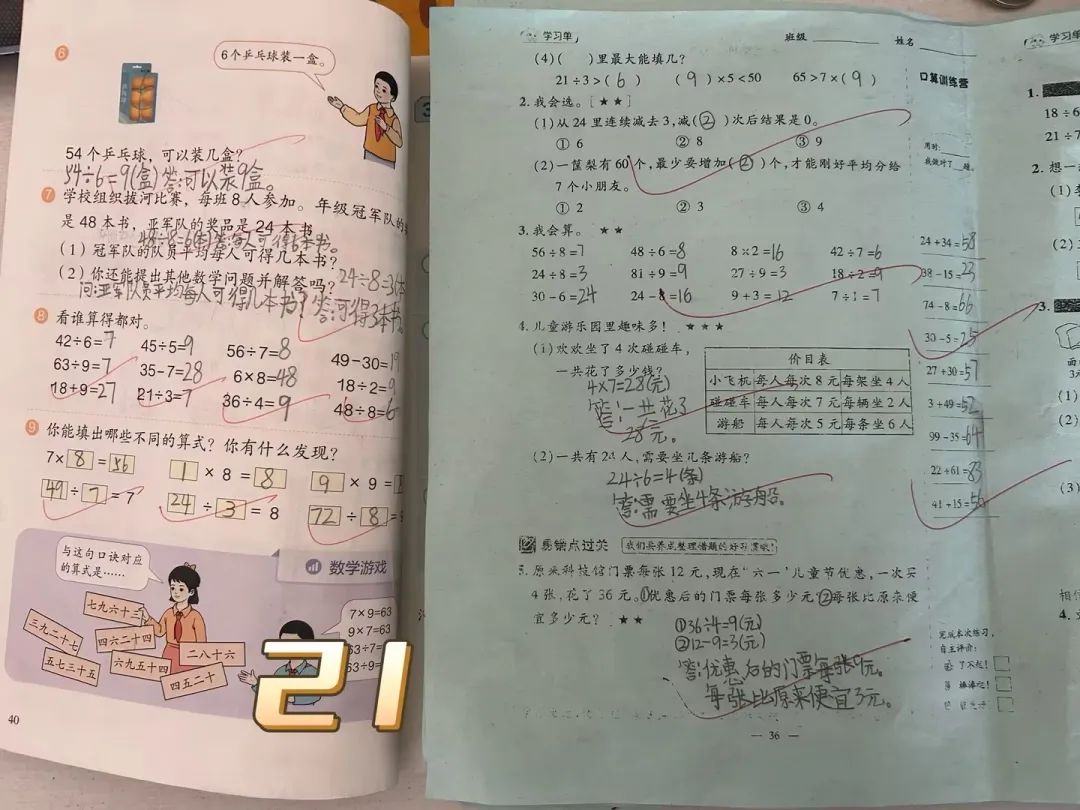 6
6个乒乓球装一盒。
54个乒乓球，可以装几盒?
54÷6=9(盒) 答:可以装9盒。
7 学校组织拔河比赛，每班8人参加。年级冠军队的
是48本书，亚军队的奖品是24本书。
48÷8=6(本)答:每人可得6本书。
(1)冠军队的队员平均每人可得几本书?
(2)你还能提出其他数学问题并解答吗? 24÷8=3(本
问:亚军队员平均每人可得几本书? 答:可得3本书。
8 看谁算得都对。
42÷6=7 45÷5=9 56÷7=8 49-30=19
63÷9=7 35-7=28 6×8=48 18÷2=9
18+9=27 21÷3=7 36÷4=9 48÷8=6
9 你能填出哪些不同的算式? 你有什么发现?
7×8=56 1×8=8 9×9=
49÷7=7 24÷3=8 72÷8=
数学游戏
与这句口诀对应
的算式是……
七九六十三
三九二十七
四六二十四
二八十六
五七三十五
六九五十四
四五二十
7×9=63
9×7=63
63÷7=
63÷9=
21
40
学习单 班级 姓名
(4)( )里最大能填几?
21÷3>(6) (9)×5<50 65>7×(9)
2.我会选。[★★]
(1)从24里连续减去3,减(②)次后结果是0。
①6 ②8 ③9
(2)一筐梨有60个,最少要增加(②)个,才能刚好平均分给
7个小朋友。
①2 ②3 ③4
3.我会算。★★
56÷8=7 48÷6=8 8×2=16 42÷7=6
24÷8=3 81÷9=9 27÷9=3 18÷2=9
30-6=24 24-8=16 9+3=12 7÷1=7
4.儿童游乐园里趣味多! ★★★
(1)欢欢坐了4次碰碰车,
一共花了多少钱?
4×7=28(元)
答:一共花了
28元。
价目表
小飞机 每人每次8元 每架坐4人
碰碰车 每人每次7元 每辆坐2人
游船 每人每次5元 每条坐6人
(2)一共有24人,需要坐几条游船?
24÷6=4(条)
答:需要坐4条游船。
易错点过关 我们共养成整理错题的好习惯哦!
5.原来科技馆门票每张12元,现在“六一”儿童节优惠,一次买
4张,花了36元。①优惠后的门票每张多少元②每张比原来便
宜多少元? ★★
①36÷4=9(元)
②12-9=3(元)
答:优惠后的门票每张9元。
每张比原来便宜3元。
— 36 —
口算训练营
用时:
我做对了 题。
24+34=58
38-15=23
74-8=66
30-5=25
27+30=57
3+49=52
99-35=64
22+61=83
41+15=56
完成本次练习,
自主评价:
了不起!
学习单
1.
18÷6
21÷7
2.想一
(1)
(2)
3.
(1)
(2)
(3)
4.